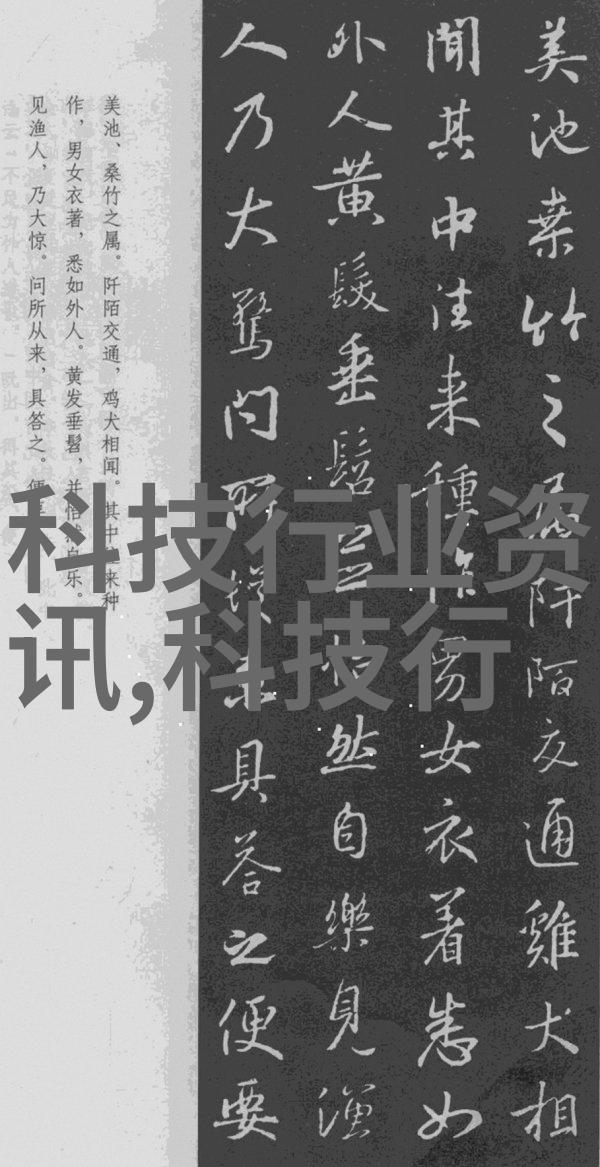 美池桑竹之属阡陌交通雞犬相
聞其中往来種作男女衣着悉如
外人黄髮垂髫並怡然自樂見漁
人乃大驚問所従来具答之便要
美池、桑竹之属。阡陌交通，鸡犬相闻。其中往来种
作，男女衣著，悉如外人。黄发垂髫，并怡然自乐。
见渔人，乃大惊。问所从来，具答之。便
科技行业资
讯,科技行